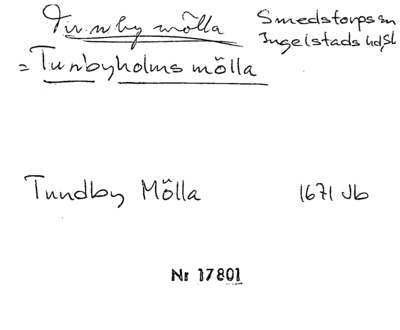 Tunby mölla
Smedstorps sn
Ingelstads hdsl
= Tunbyholms mölla
Tundby Mölla 1671 Jb
Nr 17801